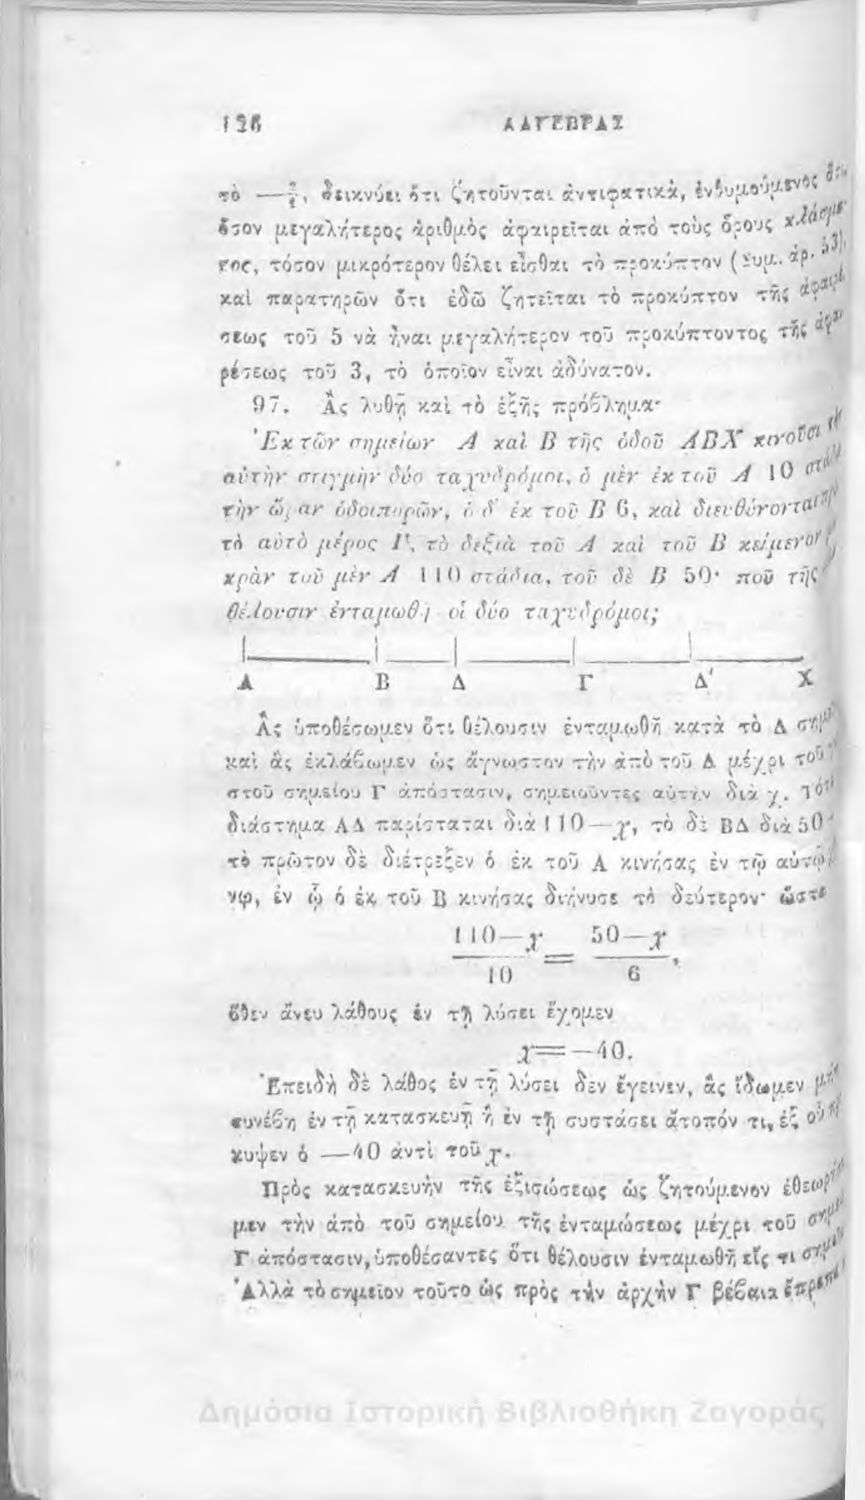 126 ΑΛΓΕΒΡΑΣ
τὸ — , δεικνύει ὅτι ζητοῦνται ἀντιφατικὰ, ἐνθυμούμενος ὅτι
ὅσον μεγαλήτερος ἀριθμὸς ἀφαιρεῖται ἀπὸ τοὺς ὅρους κλάσμα-
τος, τόσον μικρότερον θέλει εἶσθαι τὸ προκύπτον (Συμ. ἀρ. 53),
καὶ παρατηρῶν ὅτι ἐδῶ ζητεῖται τὸ προκύπτον τῆς ἀφαιρέ
σεως τοῦ 5 νὰ ἦναι μεγαλήτερον τοῦ προκύπτοντος τῆς ἀφαι
ρέσεως τοῦ 3, τὸ ὁποῖον εἶναι ἀδύνατον.
97. Ἂς λυθῇ καὶ τὸ ἑξῆς πρόβλημα·
Ἐκ τῶν σημείων Α καὶ Β τῆς ὁδοῦ ΑΒΧ κινοῦσι τὴν
αὐτὴν στιγμὴν δύο ταχυδρόμοι, ὁ μὲν ἐκ τοῦ Α 10 στάδια
τὴν ὥραν ὁδοιπορῶν, ὁ δ' ἐκ τοῦ Β 6, καὶ διευθύνονται
τὸ αὐτὸ μέρος Γ, τὸ δεξιὰ τοῦ Α καὶ τοῦ Β κείμενον
κρὰν τοῦ μὲν Α 110 στάδια, τοῦ δὲ Β 50· ποῦ τῆς
θέλουσιν ἐνταμωθῇ οἱ δύο ταχυδρόμοι;
Α Β Δ Γ Δ' Χ
Ἂς ὑποθέσωμεν ὅτι θέλουσιν ἐνταμωθῆ κατὰ τὸ Δ
καὶ ἂς ἐκλάβωμεν ὡς ἄγνωστον τὴν ἀπὸ τοῦ Δ μέχρι τοῦ
στοῦ σημείου Γ ἀπόστασιν, σημειοῦντες αὐτὴν διὰ χ. Τότε
διάστημα ΑΔ παρίσταται διὰ 110—χ, τὸ δὲ ΒΔ διὰ 50
τὸ πρῶτον δὲ διέτρεξεν ὁ ἐκ τοῦ Α κινήσας ἐν τῷ αὐτῷ
νῳ, ἐν ᾧ ὁ ἐκ τοῦ Β κινήσας διήνυσε τὸ δεύτερον· ὥστε
110—χ 50—χ
=
10 6 ,
ὅθεν ἄνευ λάθους ἐν τῇ λύσει ἔχομεν
χ=—40.
Ἐπειδὴ δὲ λάθος ἐν τῇ λύσει δὲν ἔγεινεν, ἂς ἴδωμεν
συνέβη ἐν τῇ κατασκευῇ ἢ ἐν τῇ συστάσει ἄτοπόν τι, ἐξ οὗ
κυψεν ὁ —40 ἀντὶ τοῦ χ.
Πρὸς κατασκευὴν τῆς ἐξισώσεως ὡς ζητούμενον ἐθεωρή
μεν τὴν ἀπὸ τοῦ σημείου τῆς ἐνταμώσεως μέχρι τοῦ
Γ ἀπόστασιν, ὑποθέσαντες ὅτι θέλουσιν ἐνταμωθῆ εἴς τι
Ἀλλὰ τὸ σημεῖον τοῦτο ὡς πρὸς τὴν ἀρχὴν Γ βέβαια ἔπρεπε
Δημόσια Ιστορική Βιβλιοθήκη Ζαγοράς